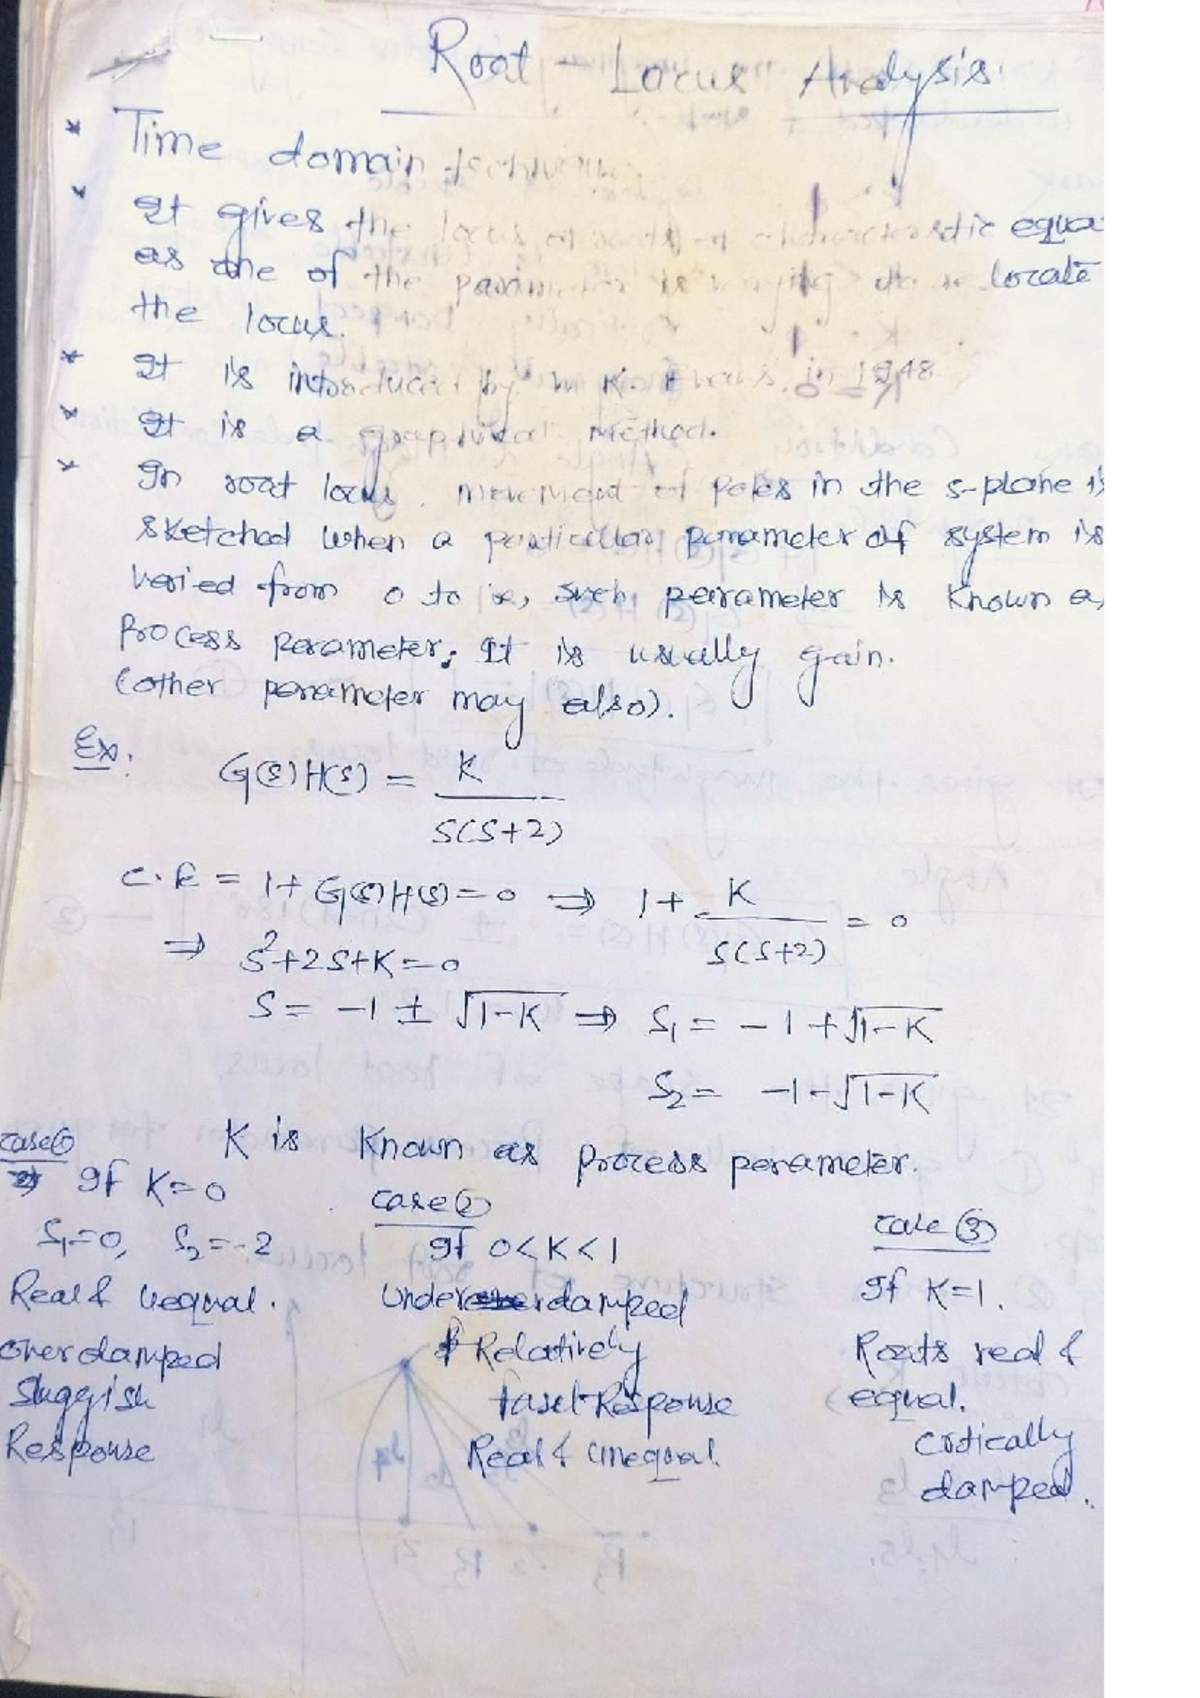 Root - Locus Analysis
* Time domain technique
* It gives the locus of roots of characteristic equa
as the of the parameter is varying to locate
the locus.
* It is introduced by W.R. Evans in 1948
* It is a graphical method.
* In root locus movement of poles in the s-plane is
sketched when a particular parameter of system is
varied from 0 to ∞, such parameter is known as
Process parameter. It is usually gain.
(other parameter may also).
Ex: G(s)H(s) = K / S(S+2)
C.E = 1+ G(s)H(s) = 0 ⇒ 1+ K / S(S+2) = 0
⇒ S²+2S+K=0
S = -1 ± √1-K ⇒ S₁ = -1+√1-K
S₂ = -1-√1-K
K is known as process parameter.
case ①
If K=0
S₁=0, S₂=-2
Real & Uequal.
overdamped
Sluggish
Response
case ②
If 0<K<1
Underdamped
& Relatively
fast Response
Real & Unequal.
case ③
If K=1.
Roots real &
equal.
critically
damped.